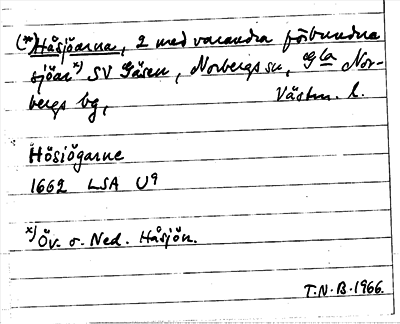 (*)Håsjöarna, 2 med varandra förbundna
sjöar x) SV Gåsen, Norbergs sn, Gla Nor-
bergs bg, Västm. l.
Hösiögarne
1662 LSA U9
x) Öv. o. Ned. Håsjön.
T.N.B. 1966.